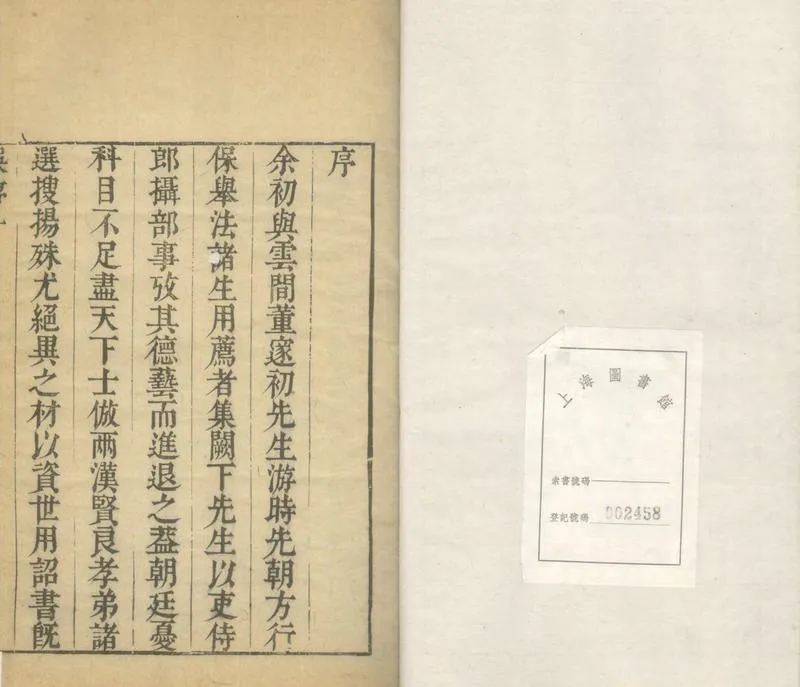 序
余初與雲間董邃初先生游時先朝方行
保舉法諸生用薦者集闕下先生以吏侍
郎攝部事攷其德藝而進退之蓋朝廷憂
科目不足盡天下士倣兩漢賢良孝弟諸
選搜揚殊尤絕異之材以資世用詔書旣
上海圖書館
索書號碼
登記號碼 002458